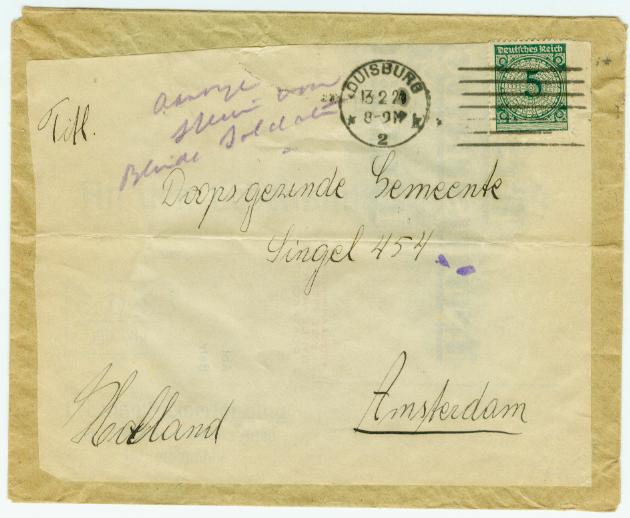 Deutsches Reich
5
DUISBURG
13.2.2
8-9N
2
Titl.
aanvrage
steun voor
Blinde Soldaten
Doopsgezinde Gemeente
Singel 454
Amsterdam
Holland